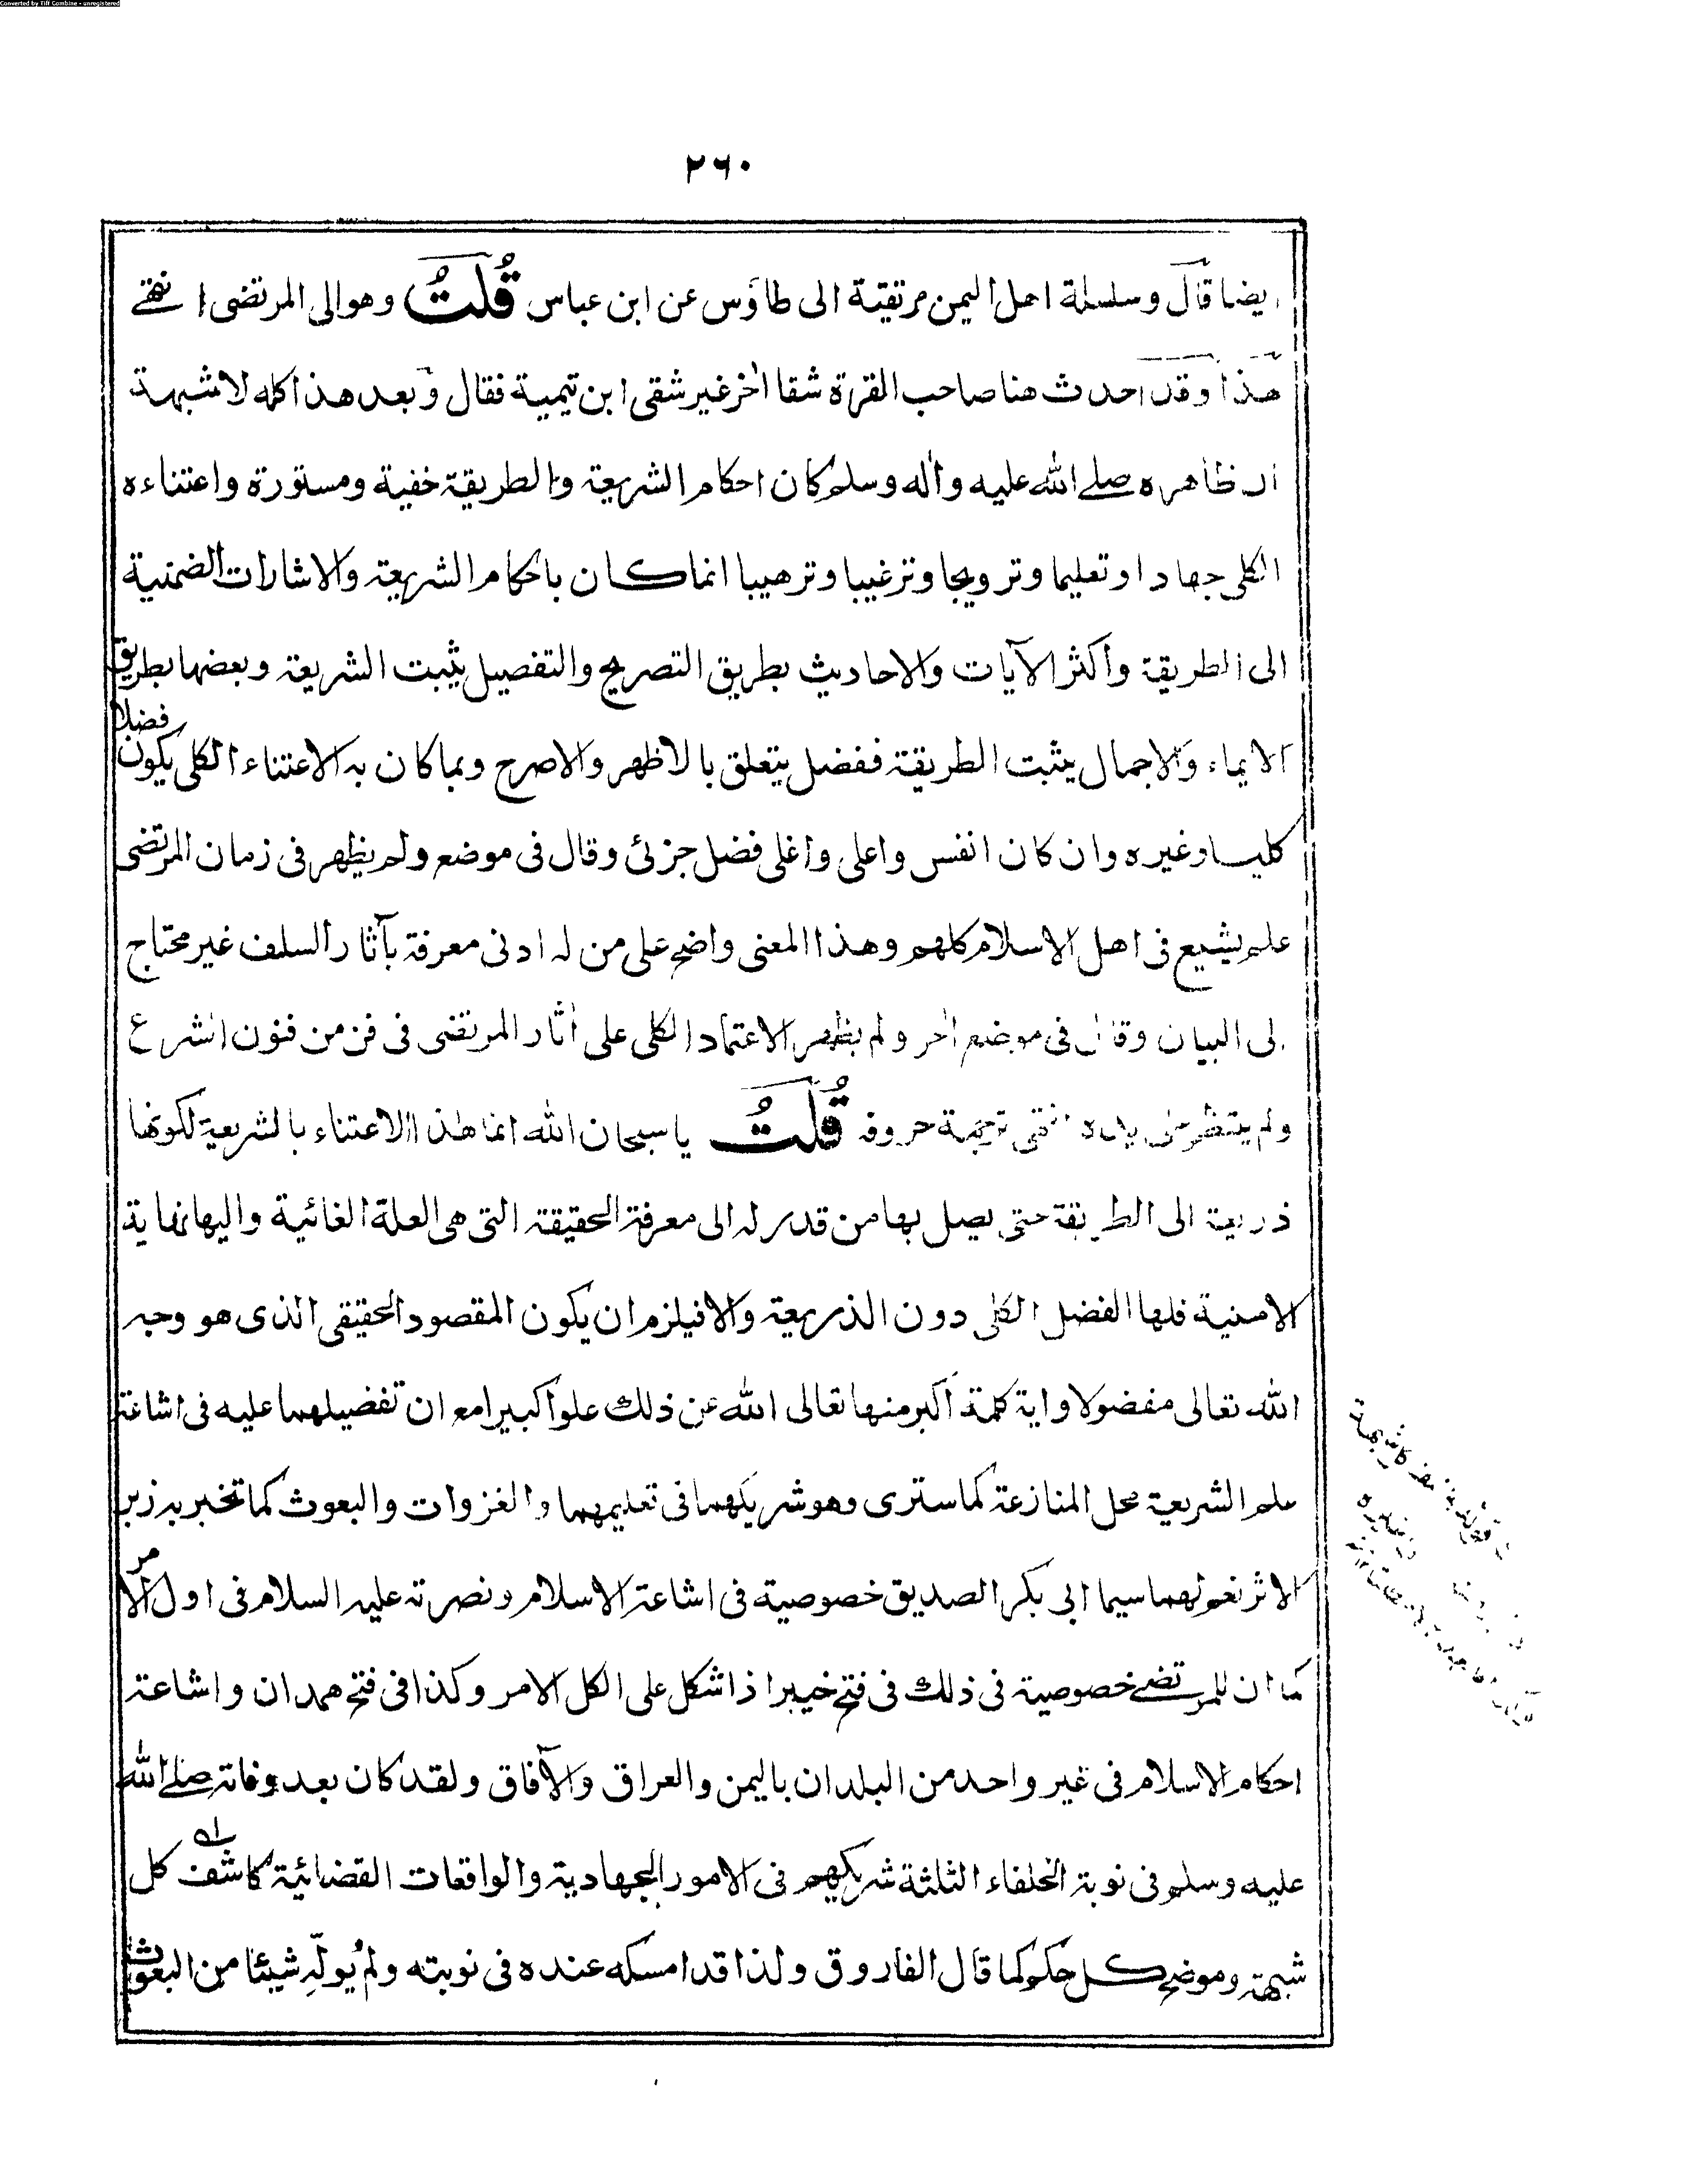 Converted by Tiff Combine - unregistered
۲۶۰
ايضا قال وسلسلة اهل اليمن مرتقية الى طاؤس عن ابن عباس قُلتُ وهو الى المرتضى انتهى
هذا وقد احدث هنا صاحب القرة شقا اٰخر غير شقى ابن تيمية فقال وبعد هذا كله لا شبهة
ان ظاهره صلے الله عليه واٰله وسلم كان احكام الشريعة والطريقة خفية ومستورة واعتناءه
الكلى جهادا وتعليما وترويجا وترغيبا وترهيبا انما كان باحكام الشريعة والاشارات الضمنية
الى الطريقة واكثر الآيات والاحاديث بطريق التصريح والتفصيل يثبت الشريعة وبعضها بطريق
الايماء والاجمال يثبت الطريقة ففضل يتعلق بالاظهر والاصرح وبما كان به الاعتناء الكلى يكون فضلا
كليا وغيره وان كان انفس واعلى واغلى فضل جزئى وقال فى موضع ولم يظهر فى زمان المرتضى
علم يشيع فى اهل الاسلام كلهم وهذا المعنى واضح على من له ادنى معرفة بآثار السلف غير محتاج
الى البيان وقال فى موضع اٰخر ولم يظهر الاعتماد الكلى على اٰثار المرتضى فى فن من فنون الشرع
ولم ينتظر على يده انتهى ترجمة حروفه قُلتُ يا سبحان الله انما هذا الاعتناء بالشريعة لكونها
ذريعة الى الطريقة حتى يصل بها من قدر له الى معرفة الحقيقة التى هى العلة الغائية واليها نهاية
الامنية فلها الفضل الكلى دون الذريعة والا فيلزم ان يكون المقصود الحقيقى الذى هو وجه
الله تعالى مفضولا واية كلمة اكبر منها تعالى الله عن ذلك علوا كبيرا مع ان تفضيلهما عليه فى اشاعة
علم الشريعة محل المنازعة كما سترى وهو شريكهما فى تعليمهما والغزوات والبعوث كما تخبر به زبر
الاثر نعم لهما سيما ابى بكر الصديق خصوصية فى اشاعة الاسلام ونصرته عليه السلام فى اول الامر
كما ان للمرتضے خصوصية فى ذلك فى فتح خيبر اذ اشكل على الكل الامر وكذا فى فتح همدان واشاعة
احكام الاسلام فى غير واحد من البلدان باليمن والعراق والآفاق ولقد كان بعد وفاته صلے الله
عليه وسلم فى نوبة الخلفاء الثلثة شريكهم فى الامور الجهادية والواقعات القضائية كاشف كل
شبهة وموضح كل حكم كما قال الفاروق ولذا قد امسكه عنده فى نوبته ولم يُولّهِ شيئا من البعوث